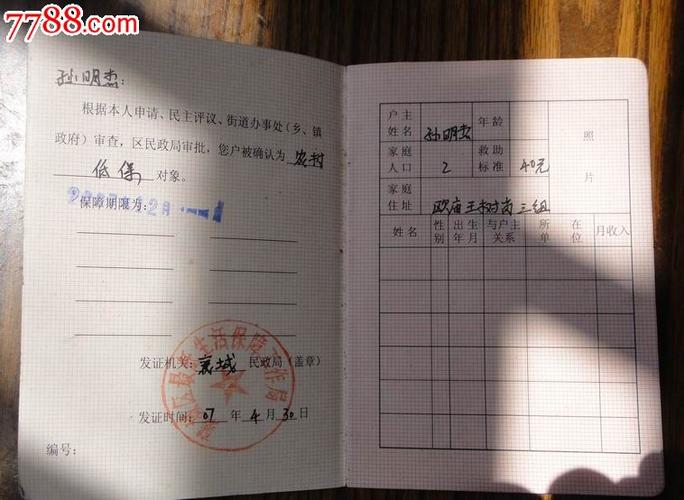 7788.com
孙明杰：
根据本人申请、民主评议、街道办事处（乡、镇
政府）审查，区民政局审批，您户被确认为 农村
低保 对象。
保障期限为：
发证机关：襄城 民政局（盖章）
发证时间：07 年 4 月 30 日
编号：
户主姓名 孙明杰 年龄 照片
家庭人口 2 救助标准 40元
家庭住址 欧庙王树岗三组
姓名 性别 出生年月 与户主关系 所在单位 月收入